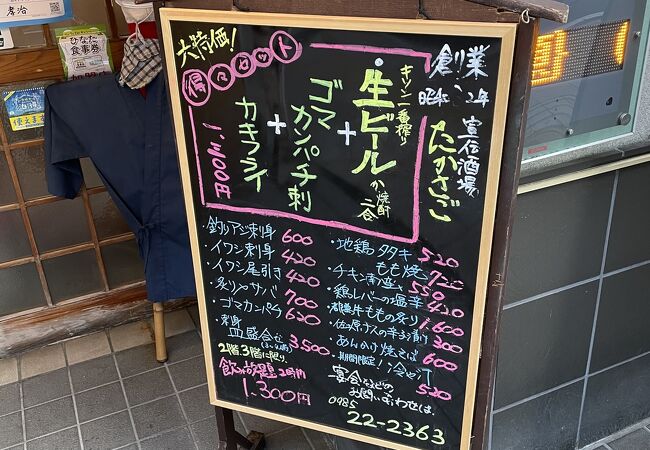 孝治
ひなた
食事券
使えます
大特価!
得々セット
キリン一番搾り
・生ビール か 焼酎二合
+
ゴマカンパチ刺
+
カキフライ
1,200円
創業
昭和 2年
宣伝酒場
たかさご
釣りアジ刺身 600
・イワシ刺身 420
・イワシ尾引き 420
・炙りやサバ 700
・ゴマカンパチ 620
・刺身
皿盛合せ 3,500
2階、3階に限り、
飲み放題 2時間
1,300円
・地鶏タタキ 520
もも焼 720
・チキン南蛮 550
・鶏レバーの塩辛 420
牛ももの炙り 1,600
・佐土原ナスの辛子漬 300
・あんかけ焼そば 600
・期間限定!冷や汁 520
宴会などの
お問い合わせは、
0985
22-2363